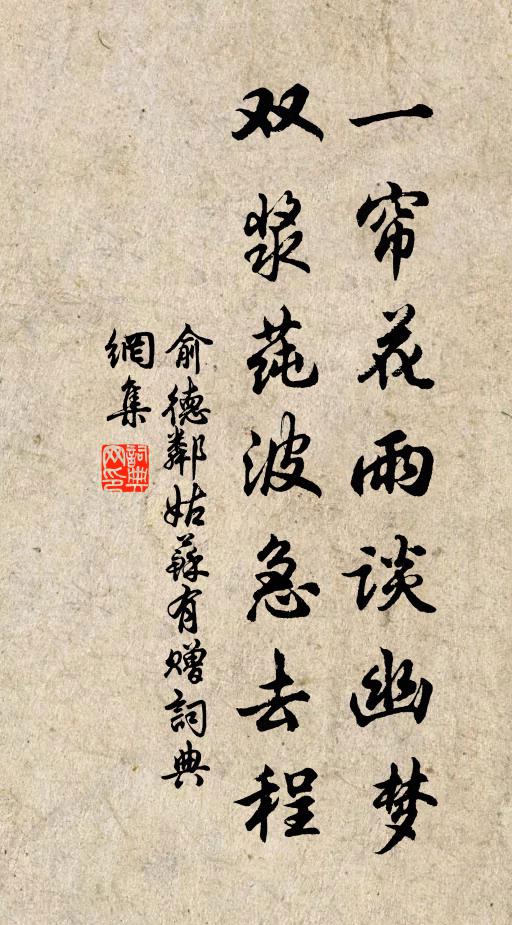 一帘花雨谈幽梦
双浆莼波急去程
俞德鄰姑蘇有赠詞典
網集
詞典
网印